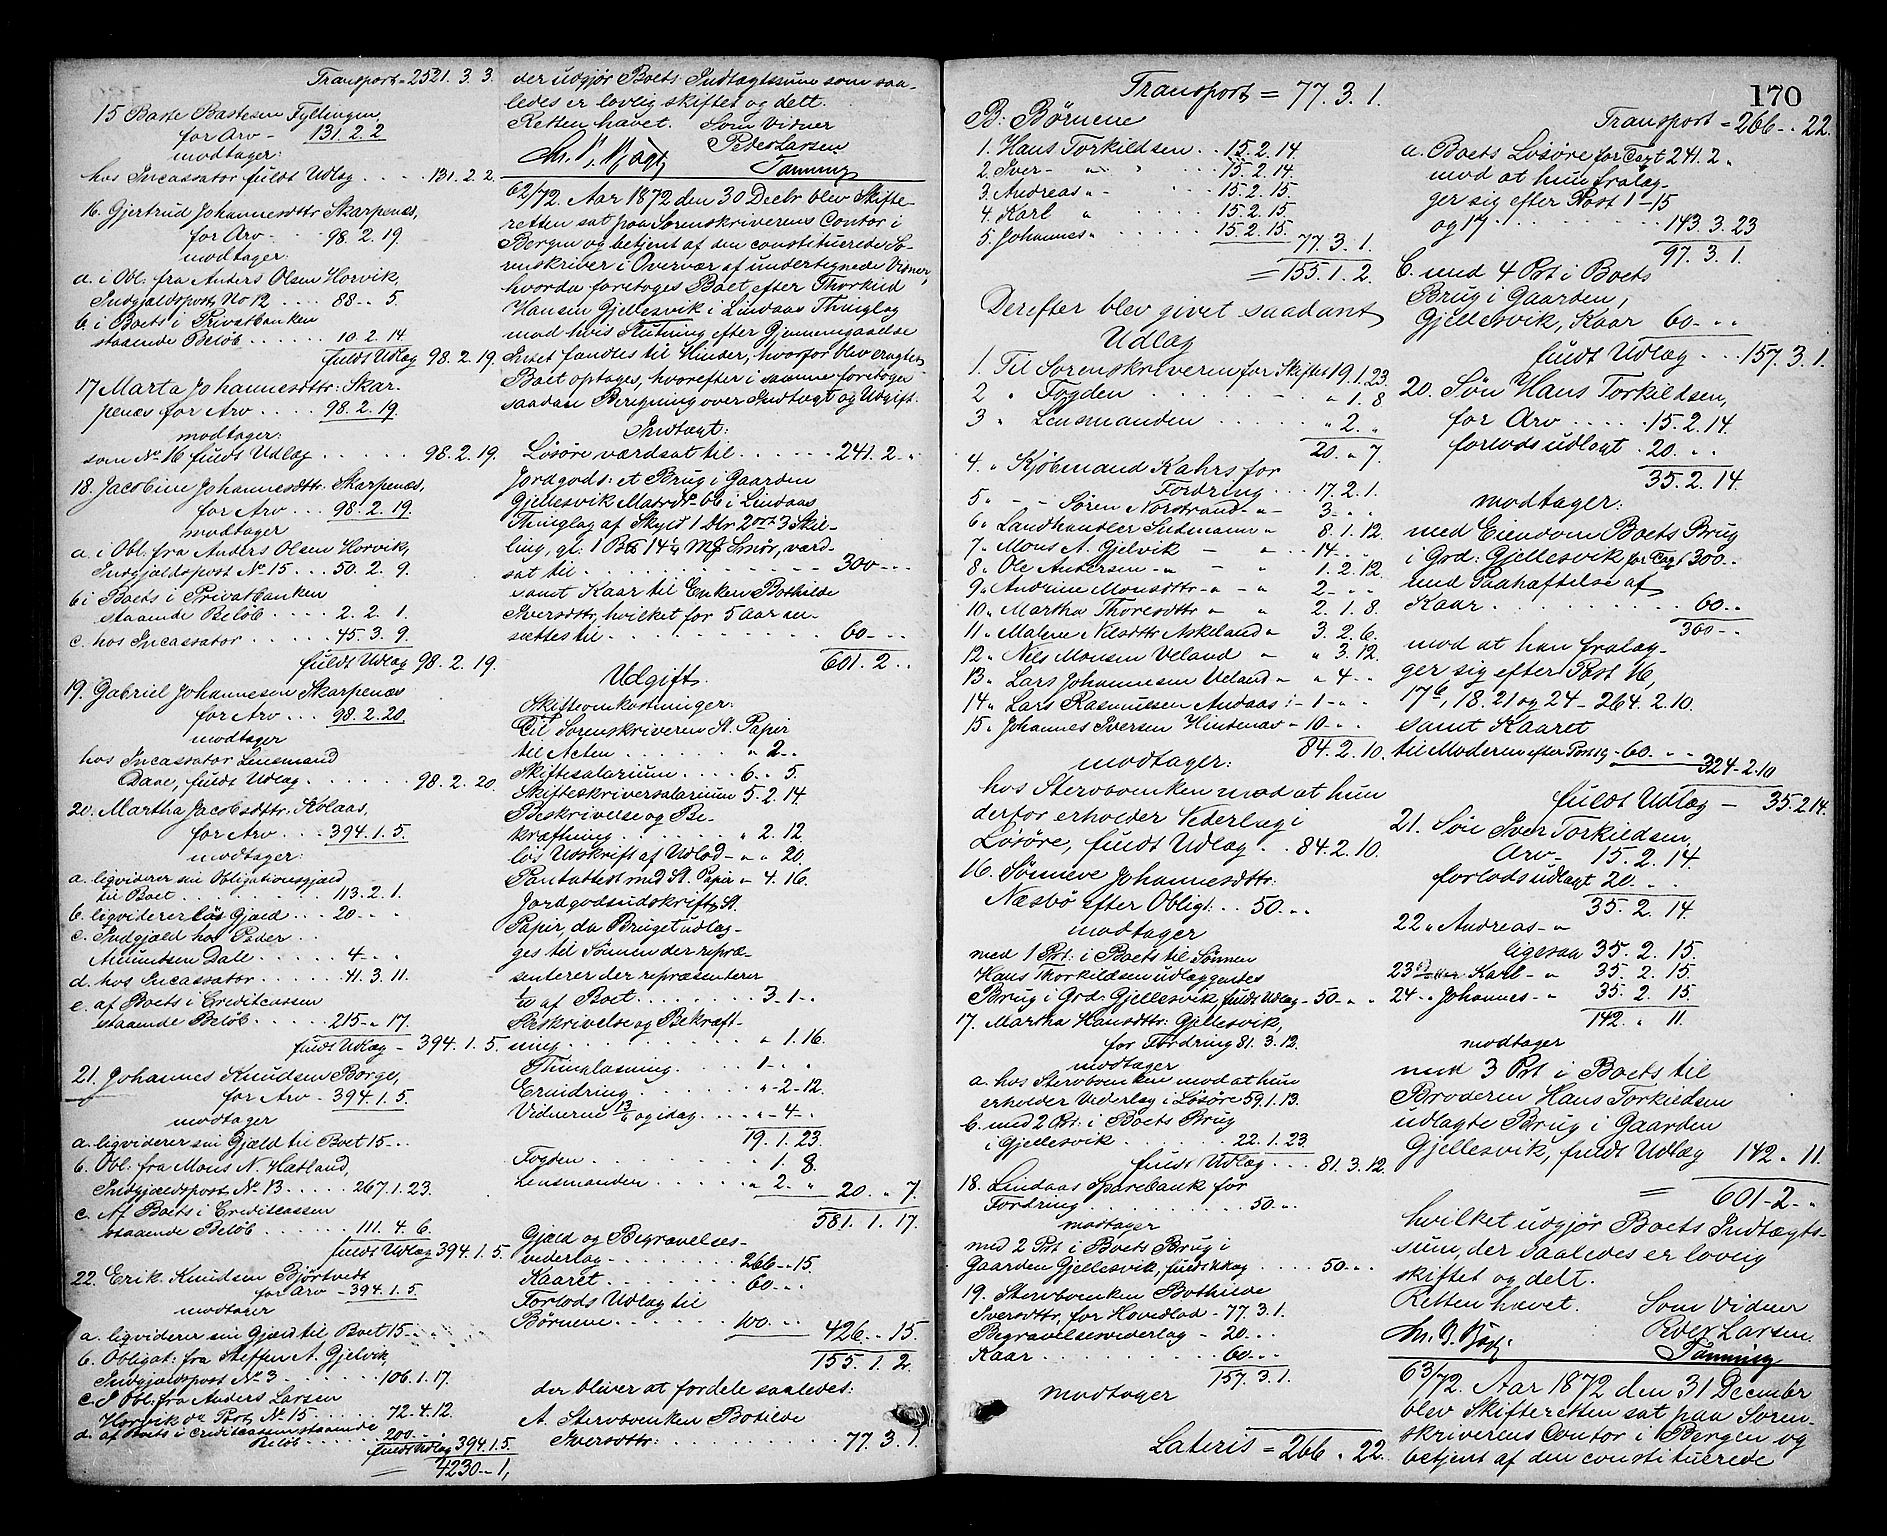 Transport - 2521. 3. 3.
15 Baste Bastesen Fyllingen,
for Arv - 131. 2. 2
modtager:
hos Incassator fuldt Udlæg . . . . 131. 2. 2.
16. Gjertrud Johannesdttr Skarpenæs,
for Arv . . . 98. 2. 19.
modtager:
a. i Obl. fra Anders Olsen Horvik,
Indgjældspost No 12 . . . . 88 - . 5.
b. i Boets i Privatbanken
staaende Beløb . . . . . . 10. 2. 14.
fuldt Udlæg 98. 2. 19.
17 Marta Johannesdttr: Skar-
penæs for Arv . . . . 98. 2. 19.
modtager:
som No 16 fuldt Udlæg . . . . . 98. 2. 19.
18. Jacobine Johannesdttr. Skarpenæs,
for Arv . . . 98. 2. 19.
modtager
a. i Obl. fra Anders Olsen Horvik,
Indgjældspost No 15 . . . 50. 2. 9.
b i Boets i Privatbanken
staaende Beløb . . . . . . 2. 2. 1.
c. hos Incassator . . . . . . 45. 3. 9.
fuldt Udlæg 98. 2. 19.
19. Gabriel Johannesen Skarpenæs
for Arv . . . 98. 2. 20
modtager
hos Incassator Lensmand
Daae, fuldt Udlæg . . . . . . 98. 2. 20.
20. Martha Jacobsdttr. Kolaas,
for Arv . . . 394. 1. 5.
modtager:
a. ligviderer sin Obligationsgjæld
til Boet . . . . . . . . . 113. 2. 1.
b. ligviderer løs Gjæld . . . 20 - . .
c. Indgjæld hos Peder
Amundsen Dale . . . . . . 4 - . .
d. hos Incassator . . . . . . 41. 3. 11.
e. af Boets i Creditcassen
staaende Beløb . . . . . 215 - . 17.
fuldt Udlæg - 394. 1. 5.
21. Johannes Knudsen Borge,
for Arv - 394. 1. 5.
modtager
a. ligviderer sin Gjæld til Boet 15 - . .
b. Obl: fra Mons N. Hætland,
Indgjældspost No 13 . . . . . 267. 1. 23.
c. Af Boets i Creditcassen
staaende Beløb . . . . . . 111. 4. 6.
fuldt Udlæg 394. 1. 5.
22. Erik Knudsen Bjørtvedt
for Arv - 394. 1. 5.
modtager
a. ligviderer sin Gjæld til Boet 15 - . .
b. Obligat: fra Steffen A. Gjelvik,
Indgjældspost No 3 . . . . . . 106. 1. 17.
c. I Obl. fra Anders Larsen
Horvik Post No 15 . . . . 72. 4. 12.
d. af Boets i Creditcassen staaende
Beløb . . . . . . . 200 - . .
fuldt Udlæg 394. 1. 5.
= 4230 - . 1,
der udgjør Boets Indtægtssum som saa-
ledes er lovlig skiftet og delt.
Retten hævet. Som Vidner
Peder Larsen
Tanning
62/72. Aar 1872 den 30 Decbr blev Skifte-
retten sat paa Sorenskriverens Contor i
Bergen og betjent af den constituerede So-
renskriver i Overvær af undertegnede Vidner,
hvorda foretoges Boet efter Thorkild
Hansen Gjellesvik i Lindaas Thinglag
mod hvis Slutning efter Gjennemgaaelse
Intet fandtes til Hinder, hvorfor blev eragtet
Boet optages, hvorefter i samme foretoges
saadan Beregning over Indtægt og Udgift.
Indtægt:
Løsøre værdsat til . . . . . . 241. 2 - .
Jordgods: et Brug i Gaarden
Gjellesvik Matr No 66 i Lindaas
Thinglag af Skyld 1 Dlr 2 ort 3 Skil-
ling, gl: 1 Bpd 14 ½ Mk Smør, værd-
sat til . . . . . . . . . . . 300 - . .
samt Kaar til Enken Bothilde
Iversdttr, hvilket for 5 Aar an-
sættes til . . . . . . . . . . . 60 - . .
601. 2 . .
Udgift.
Skifteomkostninger:
Til Sorenskriveren St. Papir
til Acten . . . . . . . . " 2 - .
Skiftesalarium . . . . 6 . . 5.
Skifteskriversalarium 5. 2. 14
Beskrivelse og Be-
kræftning . . . . . . . . " 2. 12.
løs Udskrift af Udlod - " " 20.
Pantattest med St. Papir " 4. 16.
Jordgodsudskrift, St.
Papir, da Bruget udlæg-
ges til Sønnen der repræ-
senterer der repræsenterer
to af Boet . . . . . . . . 3 - 1 - .
Beskrivelse og Bekræft-
ning . . . . . . . . . . " 1. 16.
Thinglæsning . . . . . 1 - . .
Erindring . . . . . . . " 2 - 12.
Vidnerne 13/6 og idag . . . . " - 4 - .
19. 1. 23.
Fogden . . . . . . . . . 1. 8.
Lensmanden . . . . . " 2 . " 20. " 7.
581. 1. 17.
Gjæld og Begravelses-
vederlag . . . . . . . . 266 - . 15
Kaaret . . . . . . . . . 60 - . .
Forlods Udlæg til
Børnene . . . . . . . 100 - . . 426 . . 15.
155. 1. 2.
der bliver at fordele saaledes:
A. Stervboenken Botilde
Iversdttr: . . . . . . . . . . 77. 3. 1.
170
Transport = 77. 3. 1.
B. Børnene
1. Hans Torkildsen . . 15. 2. 14.
2. Iver - " . . . . . 15. 2. 14
3. Andreas " - . . . . 15. 2. 15
4. Karl " . . . . . . 15. 2. 15.
5. Johannes " . . . . . 15. 2. 15.
77. 3. 1.
= 155. 1. 2.
Derefter blev givet saadant
Udlæg
1. Til Sorenskriveren for Skiftet 19. 1. 23.
2 " Fogden . . . . . . . . " 1. 8
3 " Lensmanden . . . . . " 2. "
20. " 7.
4. " Kjøbmand Kahrs for
Fordring . . . 17. 2. 1.
5 " - - Søren Norstrand - " - 3 - . .
6 " Landhandler Sudmann " 8. 1. 12.
7 " Mons A. Gjelvik - " . 14 - . .
8 " Ole Andersen - " - " 1. 2. 12.
9 " Andrine Monsdttr - " - " 2 - . .
10 " Martha Thoresdttr - " " 2. 1. 8.
11 " Malene Nilsdttr Askeland " 3. 2. 6.
12 " Nils Monsen Veland - " " 3. 12.
13 " Lars Johannesen Veland - " " 4 - .
14 " Lars Rasmussen Andaas : - 1 - . .
15 " Johannes Iversen Hindenæs - 10 - . .
84. 2. 10.
modtager:
hos Stervboenken mod at hun
derfor erholder Vederlag i
Løsøre, fuldt Udlæg . . 84. 2. 10.
16. Sønneve Johannesdttr.
Næsbø efter Obligt . . 50. . .
modtager
med 1 Prt. i Boets til Sønnen
Hans Thorkildsen udlæggendes
Brug i Grd: Gjellesvik, fuldt Udlæg - 50 - . .
17. Martha Hansdttr: Gjellesvik,
for Fordring 81. 3. 12.
modtager
a. hos Stervboenken mod at hun
erholder Vederlag i Løsøre 59. 1. 13.
b. med 2 Prt. i Boets Brug
i Gjellesvik . . . . . . . 22. 1. 23.
fuldt Udlæg . . . 81. 3. 12.
18. Lindaas Sparebank for
Fordring . . . . . . . . . 50. . .
modtager
med 2 Prt i Boets Brug i
Gaarden Gjellesvik, fuldt Udlæg . . . . 50 - . .
19. Stervboenken Bothilde
Iversdttr, for Hovedlod - 77. 3. 1.
Begravelsesvederlag - 20. . .
Kaar . . . . . . . . . . 60 - . .
157. 3. 1.
modtager
Lateris = 266. " 22.
Transport - 266 - . 22.
a. Boets Løsøre for Taxt 241. 2 .
mod at hun fralæg-
ger sig efter Post 1 - 15
og 17 . . . . . . . . 143. 3. 23
97. 3. 1.
b. med 4 Prt i Boets
Brug i Gaarden,
Gjellesvik, Kaar 60 - . .
fuldt Udlæg . . . 157. 3. 1.
20. Søn Hans Torkildsen,
for Arv . . . . . 15. 2. 14.
forlods udlagt 20 . . .
35. 2. 14.
modtager:
med Eiendom Boets Brug
i Grd: Gjellesvik for Taxt 300 - .
med Paahæftelse af
Kaar . . . . . . . . . . 60 - . .
360 - . .
mod at han fralæg-
ger sig efter Post 16,
17b, 18. 21 og 24 - 264. 2. 10.
samt Kaaret
til Moderen efter Post 19 - 60. . .
324 - 2. 10
fuldt Udlæg - 35. 2. 14.
21. Søn Iver Torkildsen,
Arv - 15. 2. 14
forlods udlagt 20. . .
35. 2. 14.
22 " Andreas - "
ligesaa 35. 2. 15.
23 Karl - " 35. 2. 15.
24 - " Johannes - " 35. 2. 15.
142. " 11.
modtager
med 3 Prt i Boets til
Broderen Hans Torkildsen
udlagte Brug i Gaarden
Gjellesvik, fuldt Udlæg 142. " 11.
= 601 - 2 - .
hvilket udgjør Boets Indtægts-
sum, der saaledes er lovlig
skiftet og delt.
Retten hævet. Som Vidner
Peder Larsen.
Tanning
63/72. Aar 1872 den 31 Decembr
blev Skifteretten sat paa Soren-
skriverens Contor i Bergen og
betjent af den constituerede